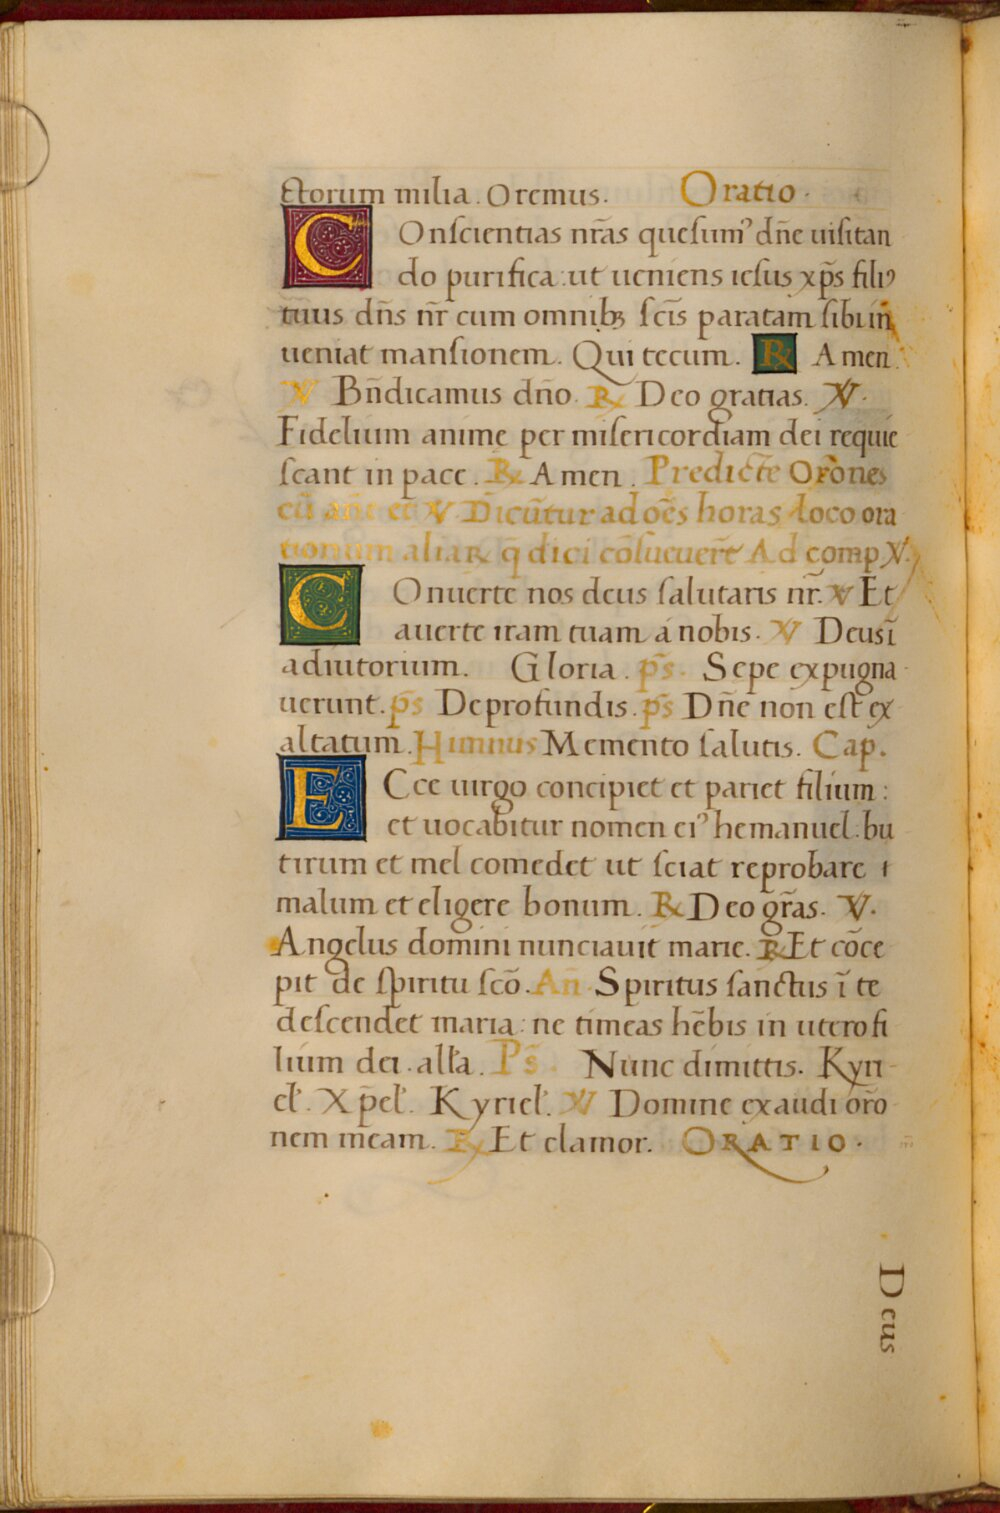 ctorum milia. Oremus. Oratio.
COnscientias nr̃as quesumꝰ dñe uisitan
do purifica: ut ueniens iesus xp̃s filiꝰ
tuus dñs nr̃ cum omnibꝫ sc̃is paratam sibi in
ueniat mansionem. Qui tecum. ℟ Amen.
℣ Bñdicamus dño. ℟ Deo gratias. ℣.
Fidelium anime per misericordiam dei requie
scant in pace. ℟ Amen. Predicte Or̃ones
cũ añe et ℣. Dicũtur ad oẽs horas loco ora
tionum aliaꝝ q̃ dici cõsueuerẽ Ad comp ℣.
COnuerte nos deus salutaris nr̃. ℣ Et
auerte iram tuam a nobis. ℣ Deus ĩ
adiutorium. Gloria. p̃s. Sepe expugna
uerunt. p̃s De profundis. p̃s Dñe non est ex
altatum. Himnus Memento salutis. Cap.
ECce uirgo concipiet et pariet filium:
et uocabitur nomen eiꝰ hemanuel. bu
tirum et mel comedet ut sciat reprobare
malum et eligere bonum. ℟ Deo gr̃as. ℣.
Angelus domini nunciauit marie. ℟ Et cõce
pit de spiritu scõ. Añ Spiritus sanctus ĩ te
descendet maria: ne timeas hẽbis in utero fi
lium dei. all'a. P̃s. Nunc dimittis. Kyri
el'. Xp̃el'. Kyriel'. ℣ Domine exaudi or̃o
nem meam. ℟ Et clamor. ORATIO.
Deus